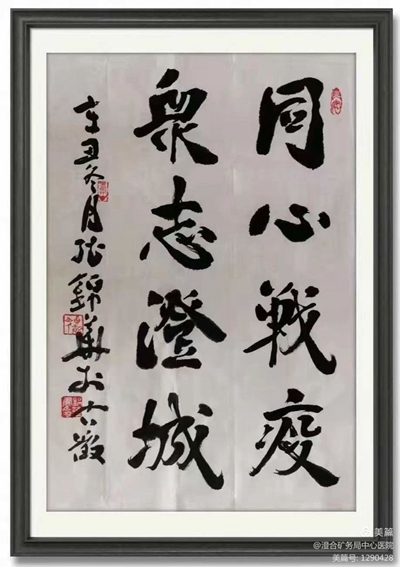 同心戰疫
衆志澄城
辛丑冬月張錦華於古徵
美篇
@澄合矿务局中心医院
美篇号: 1290428